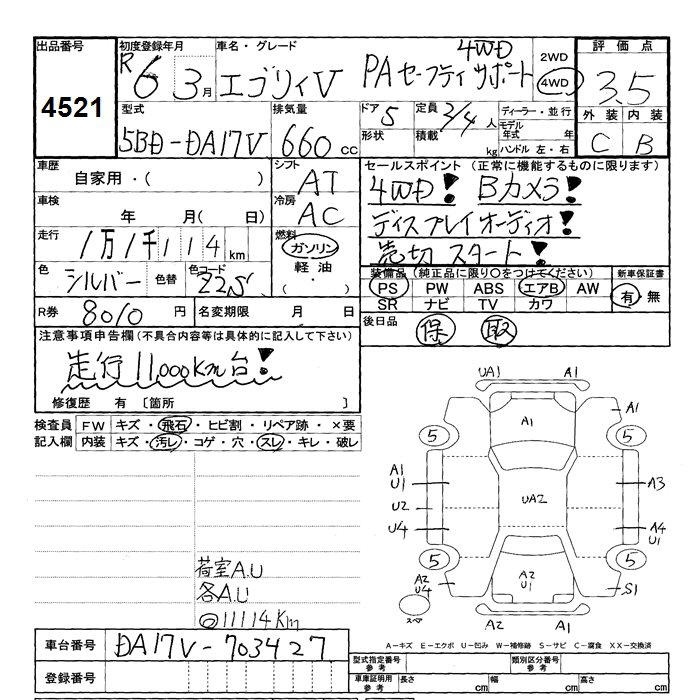 出品番号 4521
初度登録年月 R6 3月
車名・グレード エブリィV PAセーフティサポート 4WD
2WD
4WD
評価点 3.5
外装 内装
C B
型式 5BD-DA17V
排気量 660 cc
ドア 5
形状
定員 2/4 人
積載 kg
ディーラー・並行
モデル年式 年
ハンドル 左・右
車歴 自家用・( )
車検 年 月( 日)
走行 1万1千114 km
色 シルバー 色替 色コード Z2S
シフト AT
冷房 AC
燃料 ガソリン
軽油
・( ・ )
セールスポイント(正常に機能するものに限ります)
4WD! Bカメラ!
ディスプレイオーディオ!
売切スタート!
装備品(純正品に限り○をつけてください)
PS PW ABS エアB AW
SR ナビ TV カワ
新車保証書
有・無
R券 8010 円 名変期限 月 日
後日品 保 取
注意事項申告欄(不具合内容等は具体的に記入して下さい)
走行11,000Km台!
修復歴 有〔箇所 〕
検査員記入欄
FW キズ・飛石・ヒビ割・リペア跡・×要
内装 キズ・汚レ・コゲ・穴・スレ・キレ・破レ
UA1 A1
A1
A1
5 5
A1
U1
U2
U4
UA2
A3
A4
U1
5 5
A2
U4
A2
U1
S1
スペア
A2 A1
荷室A.U
各A.U
◎11114Km
A-キズ E-エクボ U-凹み W-補修跡 S-サビ C-腐食 XX-交換済
車台番号 DA17V-703427
登録番号
型式指定番号 参考
類別区分番号 参考
車庫証明用 参考 長さ cm 幅 cm 高さ cm